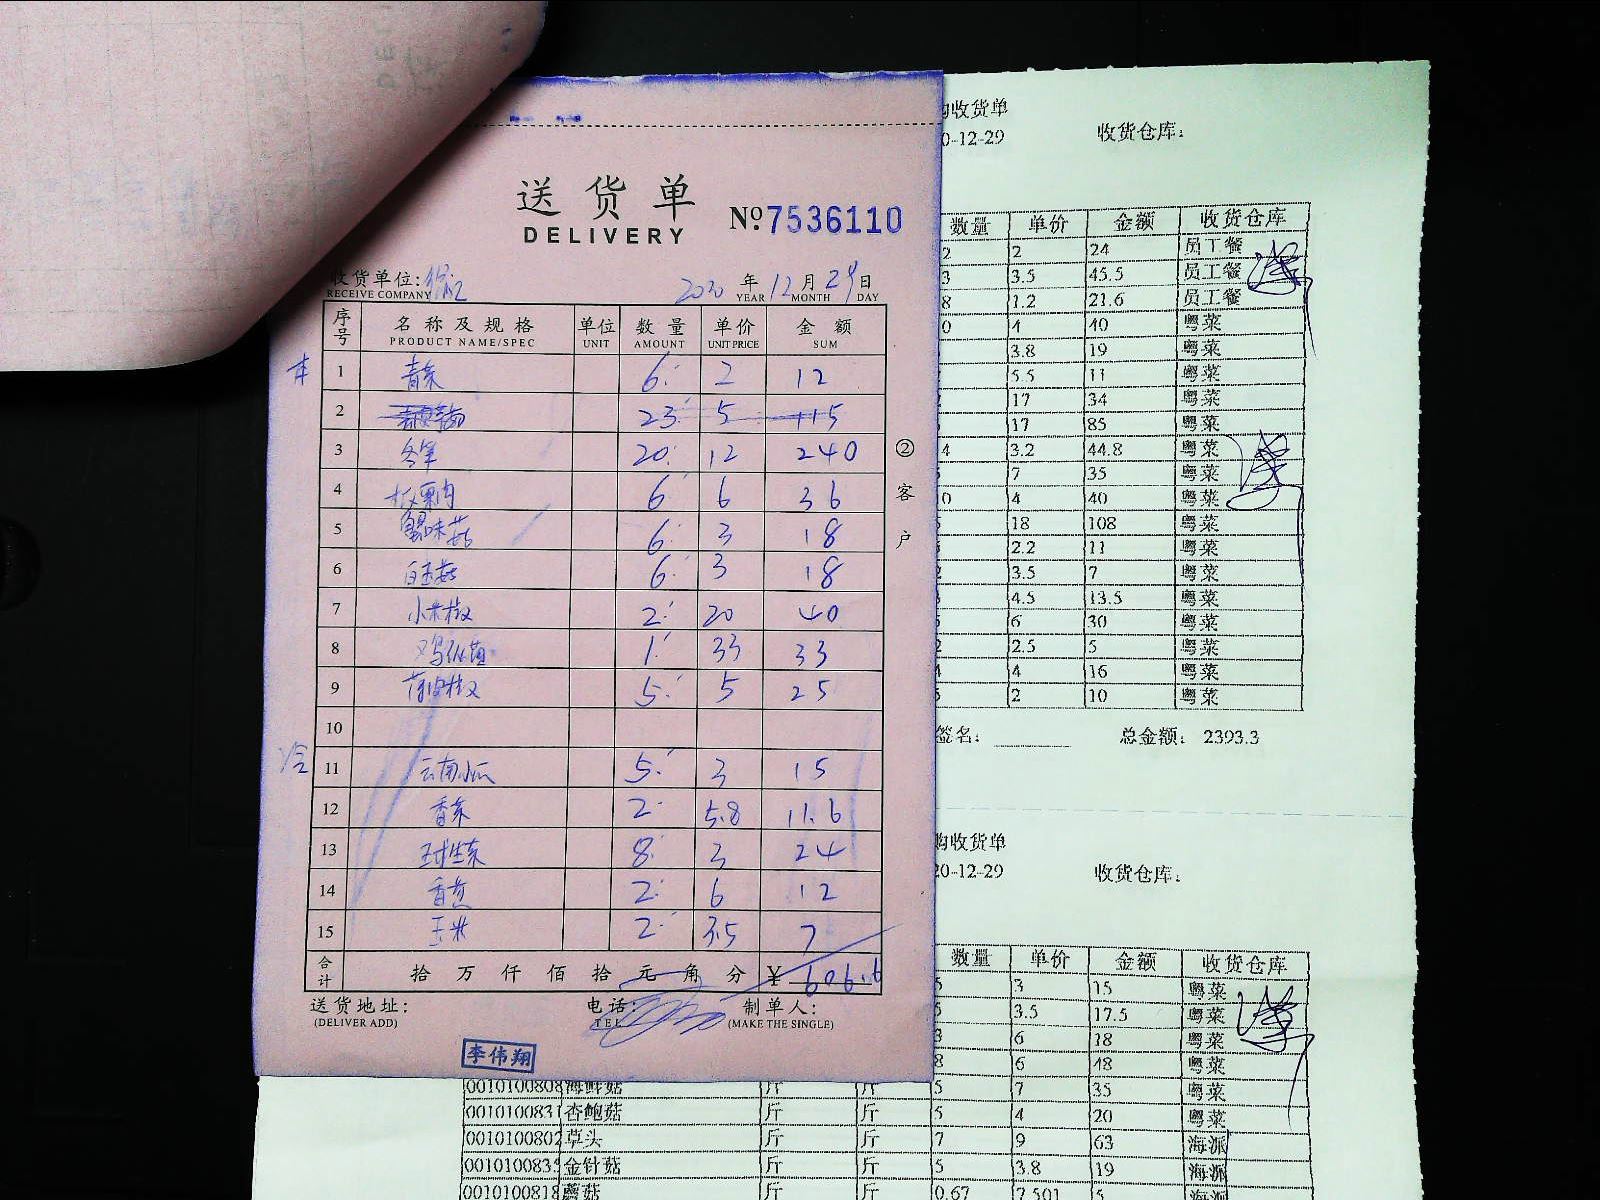 送货单
DELIVERY
№ 7536110
收货单位:
RECEIVE COMPANY
2020 年 12 月 29 日
YEAR MONTH DAY
序号 名称及规格 单位 数量 单价 金额
PRODUCT NAME/SPEC UNIT AMOUNT UNIT PRICE SUM
本
1 青菜 6 2 12
2 23 5 115
3 冬笋 20 12 240
4 板栗肉 6 6 36
5 蟹味菇 6 3 18
6 白玉菇 6 3 18
7 小米椒 2 20 40
8 鸡枞菌 1 33 33
9 薄皮椒 5 5 25
10
冷
11 云南小瓜 5 3 15
12 香菜 2 5.8 11.6
13 球生菜 8 3 24
14 香芹 2 6 12
15 玉米 2 3.5 7
合计 拾万仟佰拾元角分 ¥ 606.6
送货地址: 电话: 制单人:
(DELIVER ADD) TEL (MAKE THE SINGLE)
李伟翔
②客户
购收货单
0-12-29 收货仓库:
数量 单价 金额 收货仓库
2 2 24 员工餐
3 3.5 45.5 员工餐
8 1.2 21.6 员工餐
0 4 40 粤菜
3.8 19 粤菜
5.5 11 粤菜
17 34 粤菜
17 85 粤菜
4 3.2 44.8 粤菜
7 35 粤菜
0 4 40 粤菜
18 108 粤菜
2.2 11 粤菜
3.5 7 粤菜
4.5 13.5 粤菜
6 30 粤菜
2.5 5 粤菜
4 16 粤菜
2 10 粤菜
签名: 总金额: 2393.3
购收货单
20-12-29 收货仓库:
数量 单价 金额 收货仓库
5 3 15 粤菜
5 3.5 17.5 粤菜
3 6 18 粤菜
8 6 48 粤菜
0010100808 海鲜菇 斤 斤 5 7 35 粤菜
0010100831 杏鲍菇 斤 斤 5 4 20 粤菜
0010100802 草头 斤 斤 7 9 63 海派
001010083 金针菇 斤 斤 5 3.8 19 海派
0010100818 蘑菇 斤 斤 0.67 7.501 5 海派